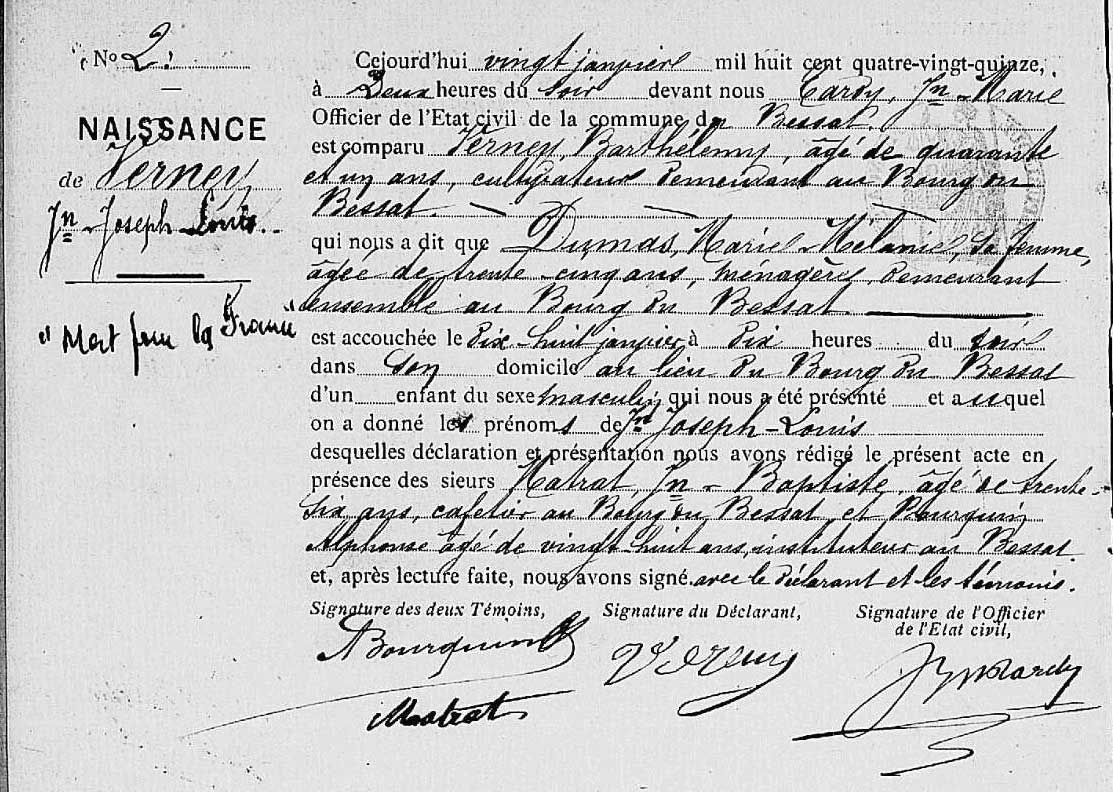 No 2.
NAISSANCE
de Verney
Jn Joseph Louis
"Mort pour la France"
Cejourd'hui vingt janvier mil huit cent quatre-vingt-quinze,
à Deux heures du soir devant nous Tardy, Jn-Marie
Officier de l'Etat civil de la commune du Bessat.
est comparu Verney, Barthélemy, âgé de quarante
et un ans, cultivateur demeurant au Bourg du
Bessat.
qui nous a dit que Dumas, Marie Mélanie, sa femme,
âgée de trente-cinq ans, ménagère, demeurant
ensemble au Bourg du Bessat.
est accouchée le dix-huit janvier à dix heures du soir
dans son domicile au lieu du Bourg du Bessat
d'un enfant du sexe masculin qui nous a été présenté et auquel
on a donné les prénoms de Jn Joseph-Louis
desquelles déclaration et présentation nous avons rédigé le présent acte en
présence des sieurs Matrat, Jn-Baptiste, âgé de trente-
six ans, cafetier au Bourg du Bessat, et Bourguin
Alphonse âgé de vingt-huit ans, instituteur au Bessat
et, après lecture faite, nous avons signé avec le déclarant et les témoins.
Signature des deux Témoins, Signature du Déclarant, Signature de l'Officier
de l'Etat civil,
ABourguin Verney JMTardy
Matrat